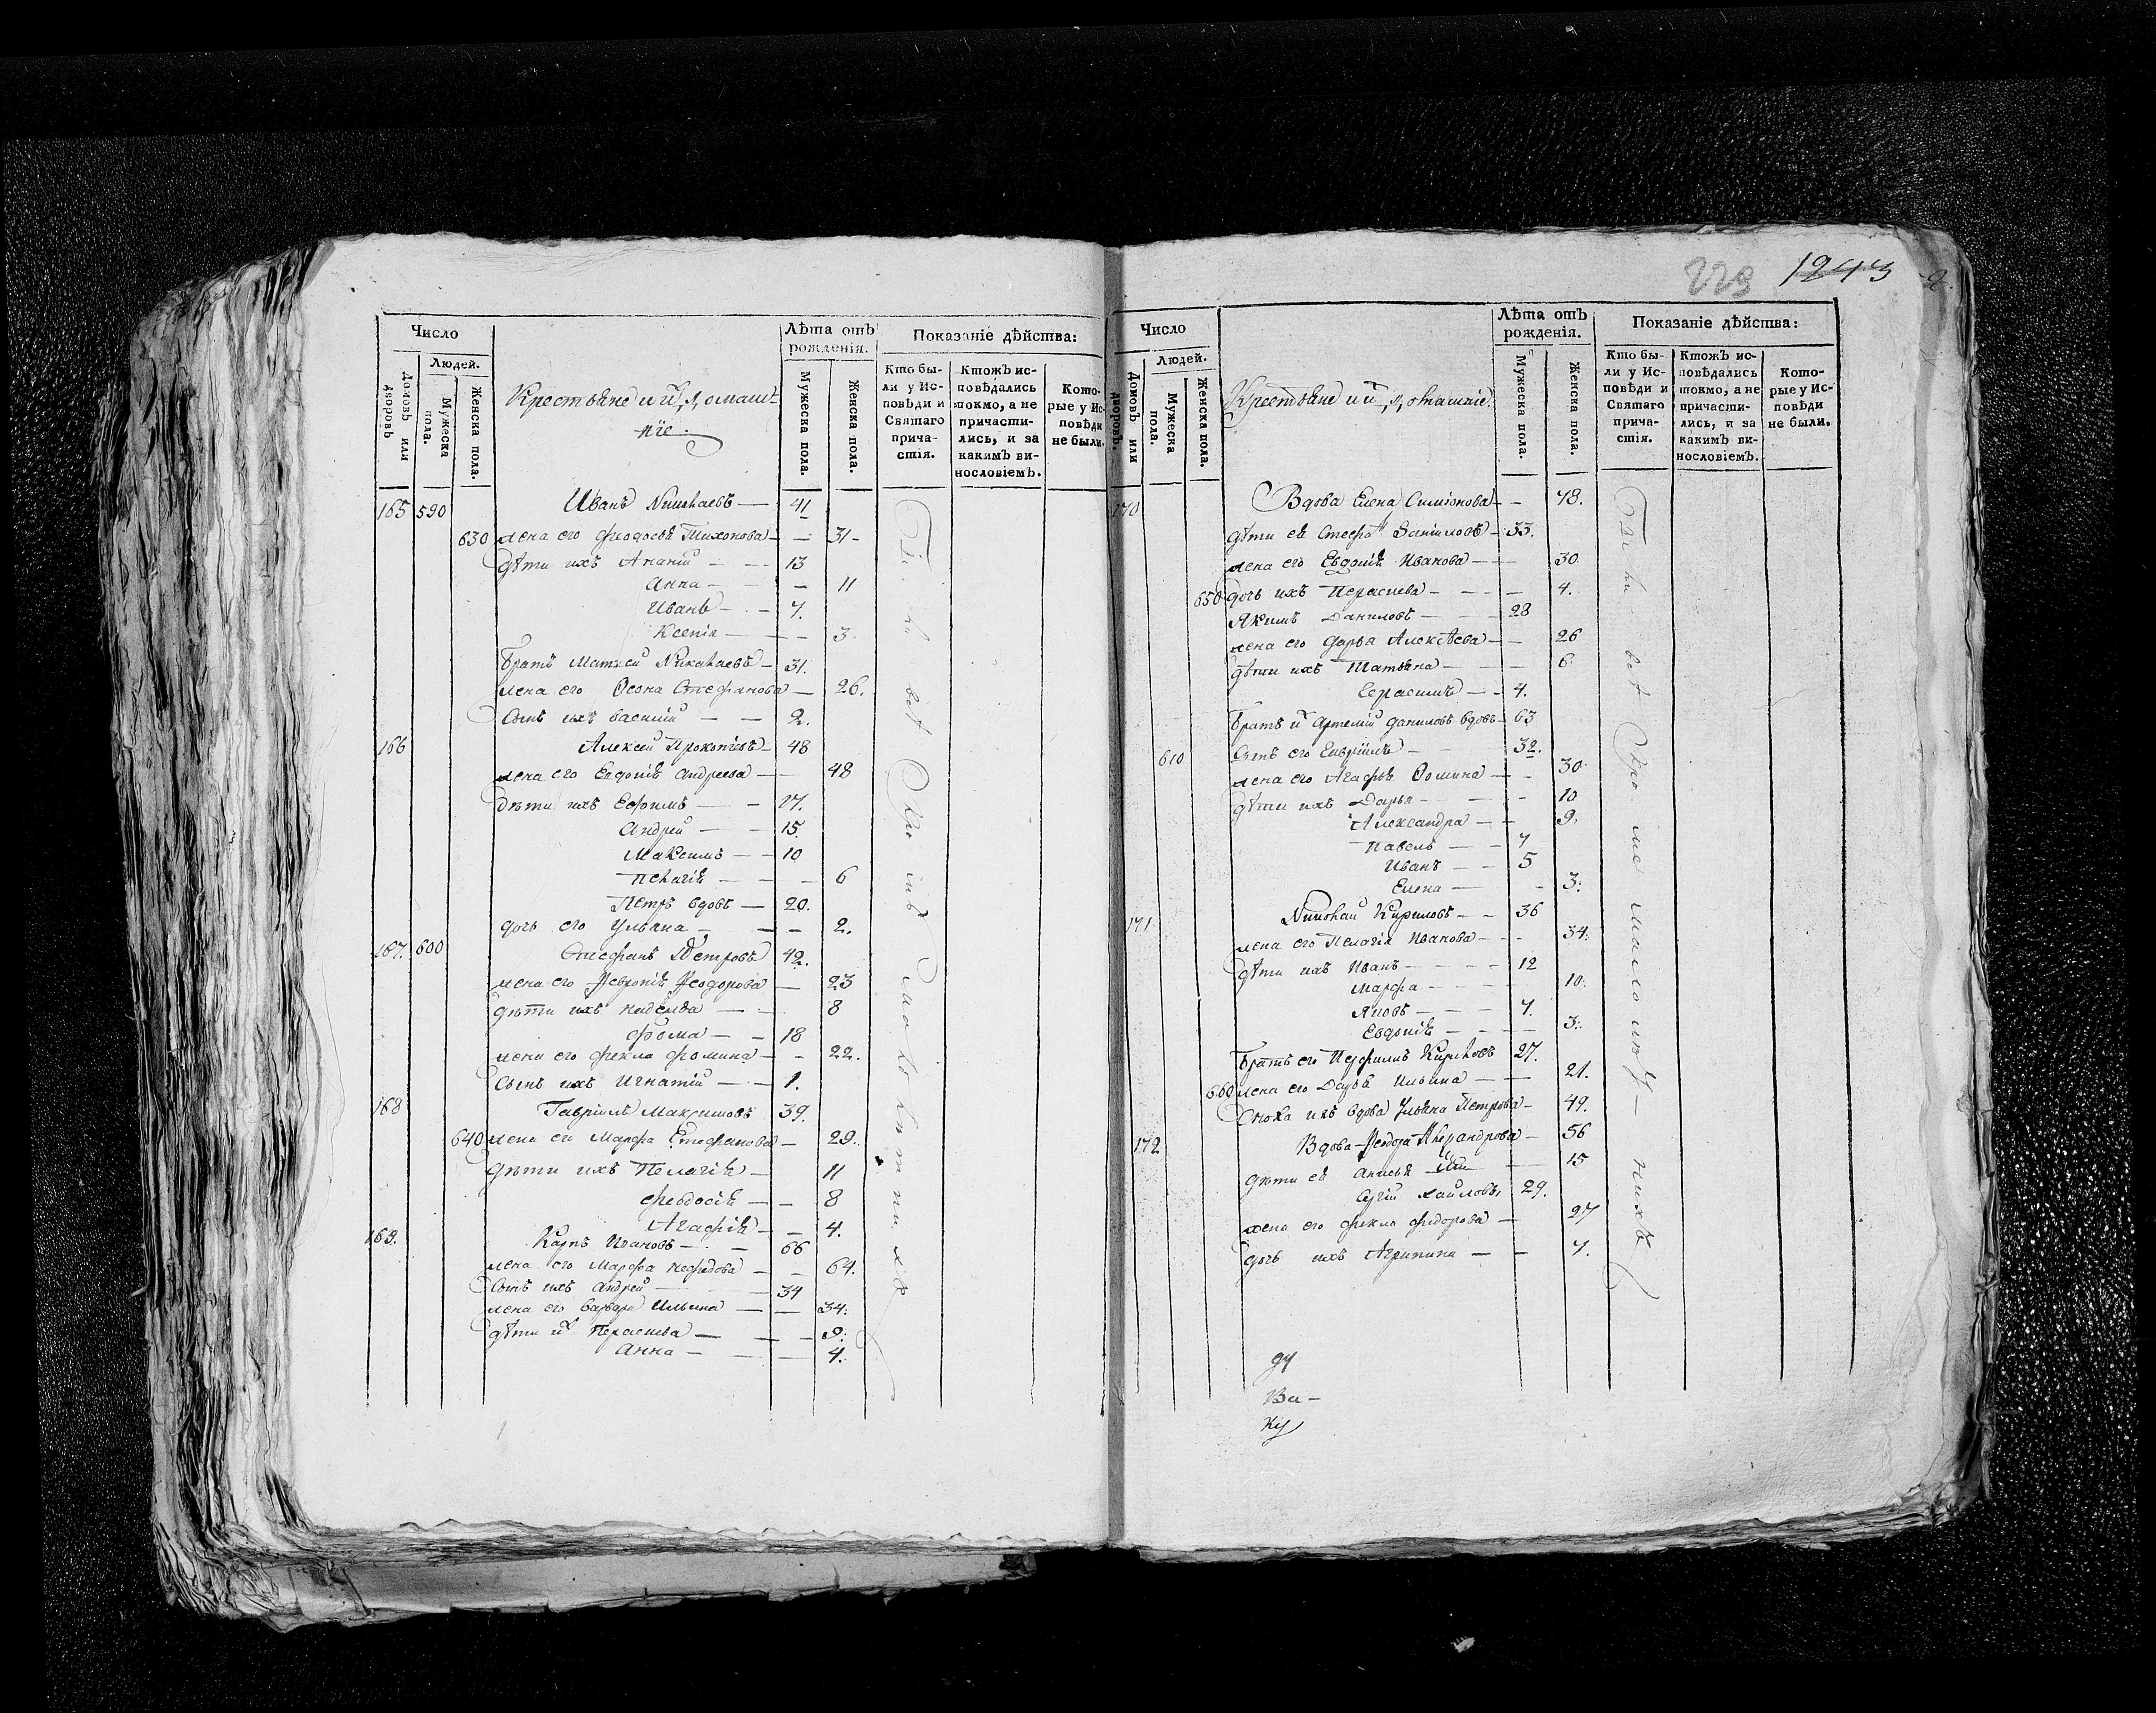 229 1243
Число
Людей.
Домовъ или дворовъ
Мужеска пола.
Женска пола.
Крестьяне и ихъ домашнїе.
Лѣта отъ рожденія.
Мужеска пола.
Женска пола.
Показаніе дѣйства:
Кто были у Исповѣди и Святаго причастія.
Ктожъ исповѣдались токмо, а не причастились, и за какимъ винословіемъ.
Которые у Исповѣди не были.
165 590 Иванъ Николаевъ — 41
630 жена его Феодосья Тихонова — 31
дѣти ихъ Ананiй — 13
Анна — 11
Иванъ — 7.
Ксенiя — 3.
Братъ Матвей Николаевъ — 31.
жена его Стефанова — 26.
Сынъ ихъ Василiй — 2.
166 Алексей Прокопiевъ — 48
жена его Евдокiя Андреева — 48
Дѣти ихъ Ефимъ — 17.
Андрей — 15
Максимъ — 10
Пелагiя — 6
Петръ вдовъ — 20.
дочь его Ульяна — 2.
167. 600 Стефанъ Петровъ 42.
жена его Февронiя Феодорова — 23
дѣти ихъ — 8
Фома — 18
жена его Фекла Фомина — 22.
Сынъ ихъ Игнатiй — 1.
168 Гаврiилъ Максимовъ 39.
640 жена его Марфа Стефанова — 29.
дѣти ихъ Пелагiя — 11
Феодосiя — 8
Агафiя — 4.
169. Карпъ Ивановъ — 66
жена его Марфа Нефедова — 64.
Сынъ ихъ Андрей — 34
жена его Варвара Ильина — 34.
дѣти их Параскева — 9.
Анна — 4.
Число
Людей.
Домовъ или дворовъ.
Мужеска пола.
Женска пола.
Крестьяне и ихъ домашнїе.
Лѣта отъ рожденія.
Мужеска пола.
Женска пола.
Показаніе дѣйства:
Кто были у Исповѣди и Святаго причастія.
Ктожъ исповѣдались токмо, а не причастились, и за какимъ винословіемъ.
Которые у Исповѣди не были.
170 Вдова Елена Симiонова — 78.
дѣти еѣ Стефа Данiиловъ — 33.
жена его Евдокiя Иванова — 30
650 дочь ихъ Параскева — 4.
Якимъ Даниловъ — 28
жена его Дарья Алексѣева — 26
дѣти ихъ Татьяна — 6
Герасимъ — 4.
Братъ их Артемiй Даниловъ вдовъ — 63
610 Сынъ его Гаврiилъ — 32.
жена его Агафья Фомина — 30
дѣти ихъ Дарья — 10
Александра — 9.
Павелъ — 7
Иванъ — 5
Елена — 3.
171 Николай Кириловъ — 36
жена его Пелагiя Иванова — 34.
дѣти ихъ Иванъ — 12
Марфа — 10.
Яковъ — 7.
Евдокiя — 3.
Братъ его Кириловъ 27.
660 жена его Дарья Ильина — 21.
Сноха ихъ вдова Ульяна Петрова — 49.
172 Вдова Феодора — 56
дѣти еѣ Анисья — 15
Сергiй 29.
жена его Фекла Федорова — 27
дочь ихъ Агрипина — 7.
ду
Ва—
ку